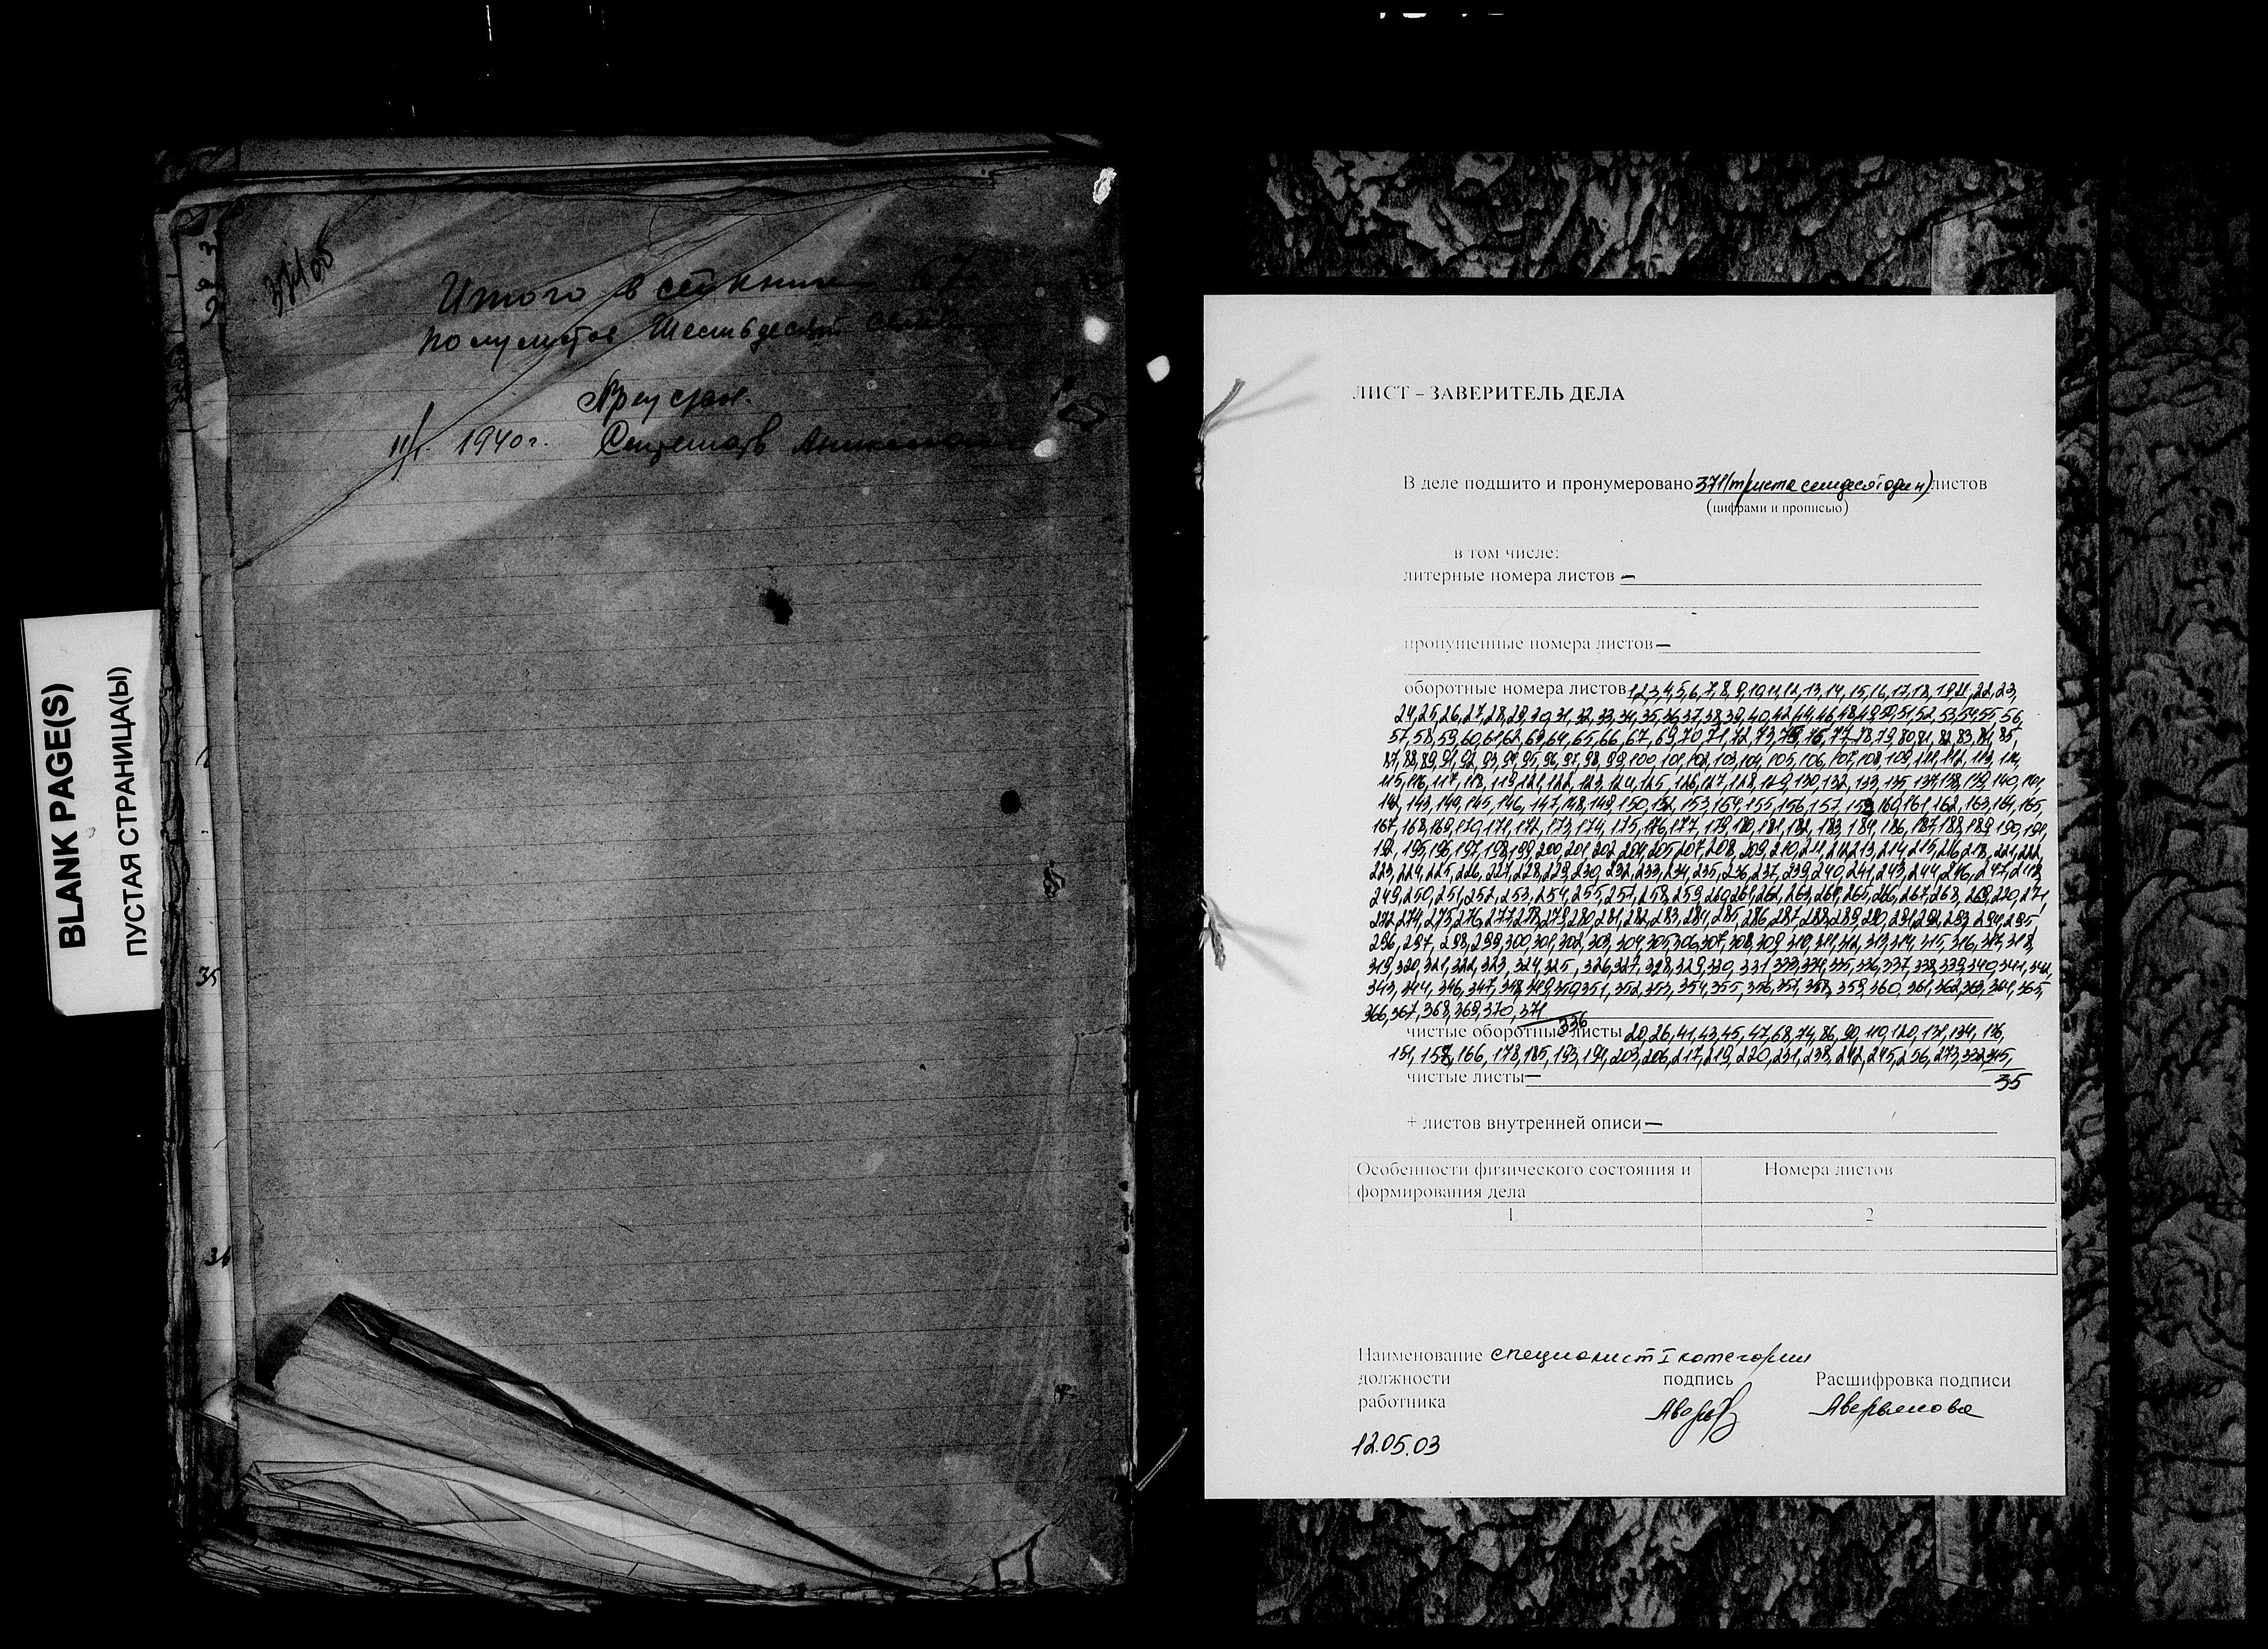 371об
Итого в сей книге 67
полулистов Шестьдесят семь
11/I 1940г.
BLANK PAGE(S)
ПУСТАЯ СТРАНИЦА(Ы)
35
36
ЛИСТ – ЗАВЕРИТЕЛЬ ДЕЛА
В деле подшито и пронумеровано 371 (триста семдесят один) листов
(цифрами и прописью)
в том числе:
литерные номера листов –
пропущенные номера листов –
оборотные номера листов 1,2,3,4,5,6,7,8,9,10,11,12,13,14,15,16,17,18,19,21,22,23,
24,25,26,27,28,29,30,31,32,33,34,35,36,37,38,39,40,42,44,46,48,49,50,51,52,53,54,55,56,
57,58,59,60,61,62,63,64,65,66,67,69,70,71,72,73,75,76,77,78,79,80,81,82,83,84,85,
87,88,89,91,92,93,94,95,96,97,98,99,100,101,102,103,104,105,106,107,108,109,111,112,113,114,
115,116,117,118,119,121,122,123,124,125,126,127,128,129,130,132,133,135,137,138,139,140,141,
142,143,144,145,146,147,148,149,150,152,153,154,155,156,157,159,160,161,162,163,164,165,
167,168,169,170,171,172,173,174,175,176,177,179,180,181,182,183,184,186,187,188,189,190,191,
192,195,196,197,198,199,200,201,202,204,205,207,208,209,210,211,212,213,214,215,216,218,221,222,
223,224,225,226,227,228,229,230,232,233,234,235,236,237,239,240,241,243,244,246,247,248,
249,250,251,252,253,254,255,257,258,259,260,261,262,263,264,265,266,267,268,269,270,271,
272,274,275,276,277,278,279,280,281,282,283,284,285,286,287,288,289,290,291,292,293,294,295
296,297,298,299,300,301,302,303,304,305,306,307,308,309,310,311,312,313,314,315,316,317,318,
319,320,321,322,323,324,325,326,327,328,329,330,331,333,334,335,336,337,338,339,340,341,342,
343,344,346,347,348,349,350,351,352,353,354,355,356,357,358,359,360,361,362,363,364,365,
366,367,368,369,370,371
336
чистые оборотные листы 20,26,41,43,45,47,68,74,86,90,110,120,131,134,136,
151,158,166,178,185,193,194,203,206,217,219,220,231,238,242,245,256,273,332,345,
чистые листы –
35
+ листов внутренней описи –
Особенности физического состояния и Номера листов
формирования дела
1 2
Наименование специалист I категории
должности подпись Расшифровка подписи
работника Аверьянова
12.05.03